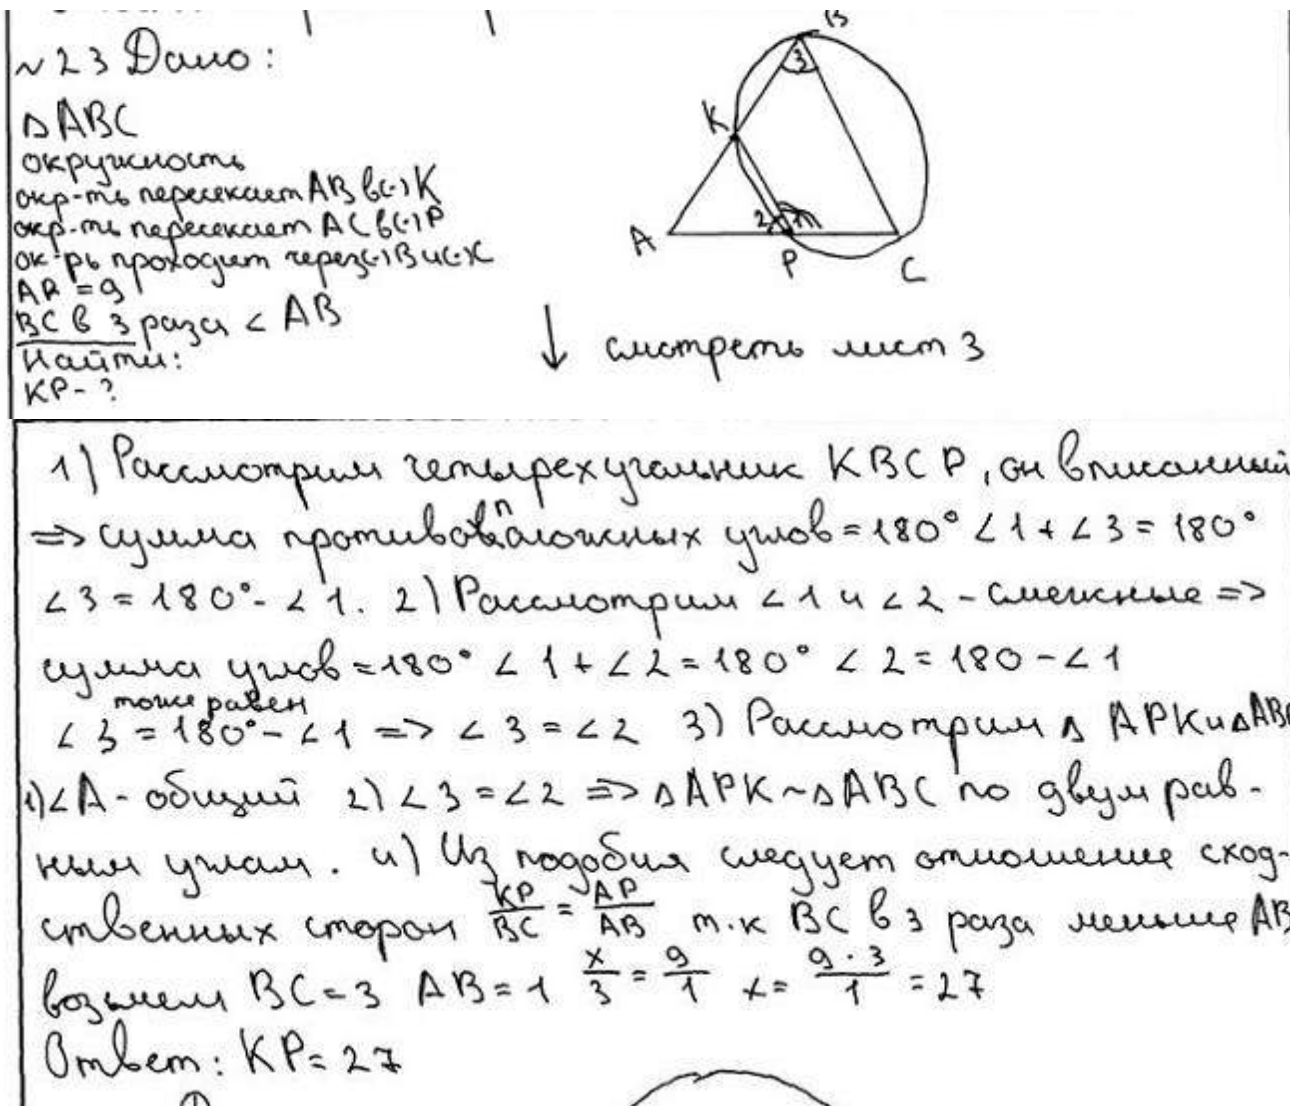 ~23 Дано:
△ABC
окружность
окр-ть пересекает AB в(·)K
окр-ть пересекает AC в(·)P
ок-рь проходит через(·)B и(·)C
AP = 9
BC в 3 раза < AB
Найти:
KP - ?
B
3
K
2 1
A
P
C
↓ смотреть лист 3
1) Рассмотрим четырехугольник KBCP, он вписанный
=> сумма противоположных углов = 180° ∠1 + ∠3 = 180°
∠3 = 180° - ∠1. 2) Рассмотрим ∠1 и ∠2 - смежные =>
сумма углов = 180° ∠1 + ∠2 = 180° ∠2 = 180 - ∠1
тоже равен
∠3 = 180° - ∠1 => ∠3 = ∠2 3) Рассмотрим △ APK и △ABC
1) ∠A - общий 2) ∠3 = ∠2 => △APK ~ △ABC по двум рав-
ным углам. 4) Из подобия следует отношение сход-
ственных сторон KP/BC = AP/AB т.к BC в 3 раза меньше AB
возьмем BC = 3 AB = 1 x/3 = 9/1 x = 9·3/1 = 27
Ответ: KP = 27